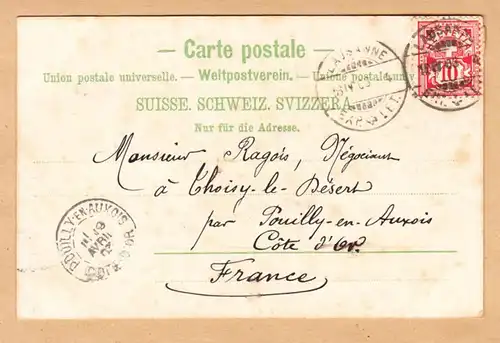 — Carte postale —
Union postale universelle. — Weltpostverein. — Unione postale univ
SUISSE. SCHWEIZ. SVIZZERA.
Nur für die Adresse.
LAUSANNE
EXP. LET.
10
Monsieur Ragois, Négociant
à Thoisy-le-Désert
par Pouilly-en-Auxois
Côte d'Or.
France
POUILLY-EN-AUXOIS
AVRIL
CÔTE-D'OR